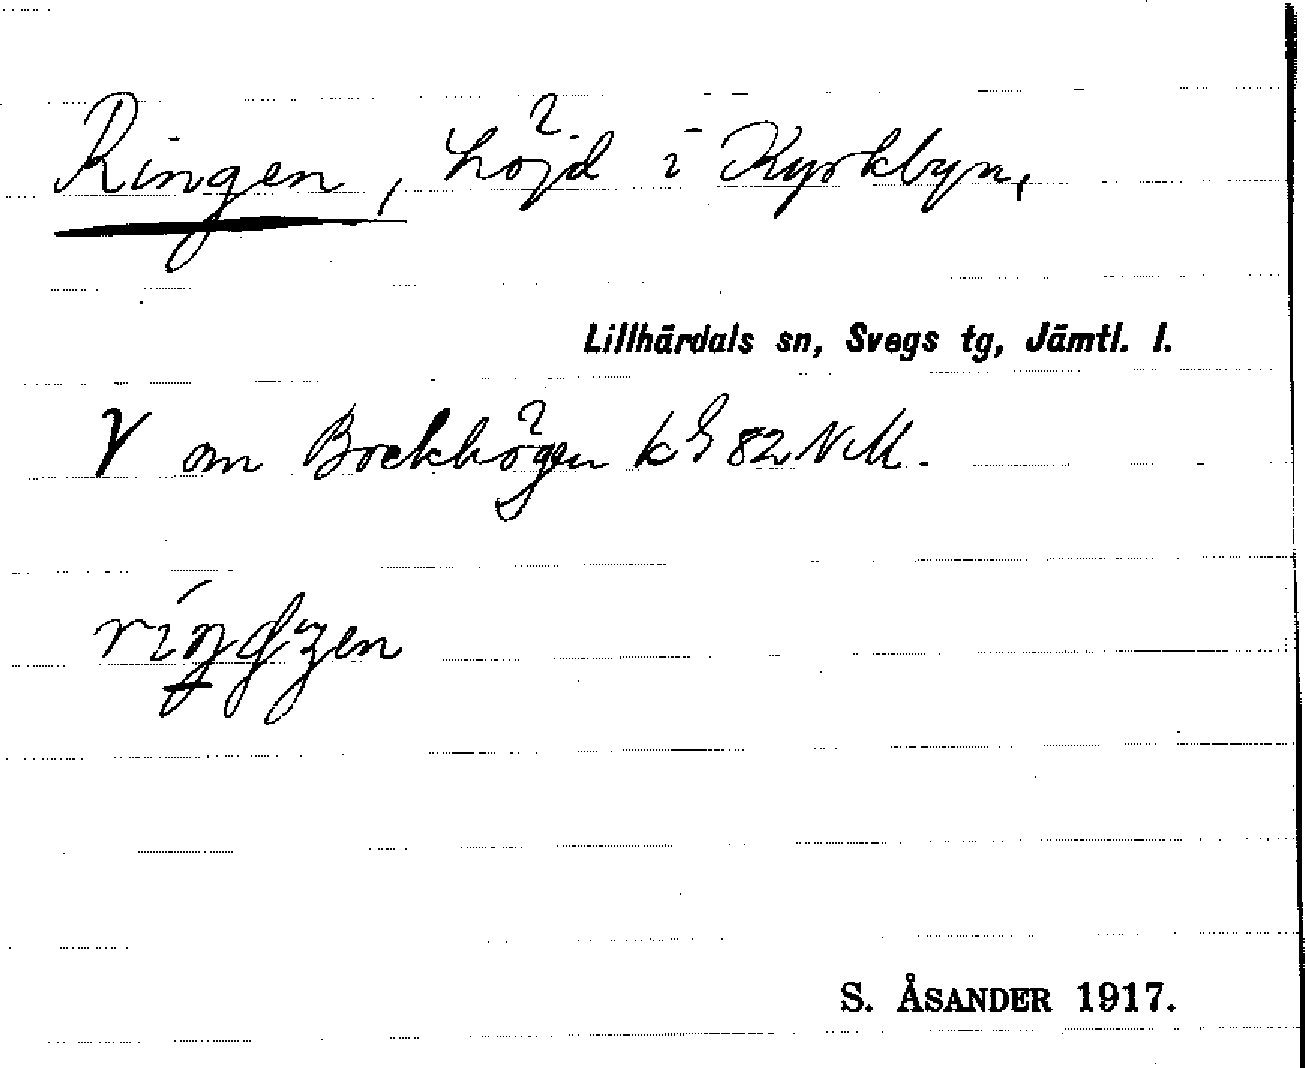 Ringen, höjd i Kyrkbyn,
Lillhärdals sn, Svegs tg, Jämtl. l.
V om Bockhögen k G 82 NM.
S. ÅSANDER 1917.